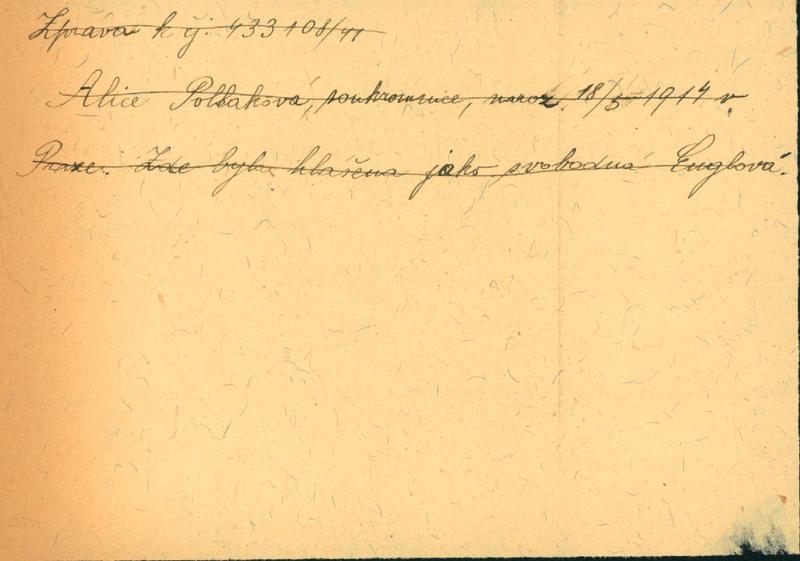 Zpráva k čj. 433108/41
Alice Pollaková, soukromnice, naroz. 18/5 1914 v
Praze. Zde byla hlášena jako svobodná Englová.